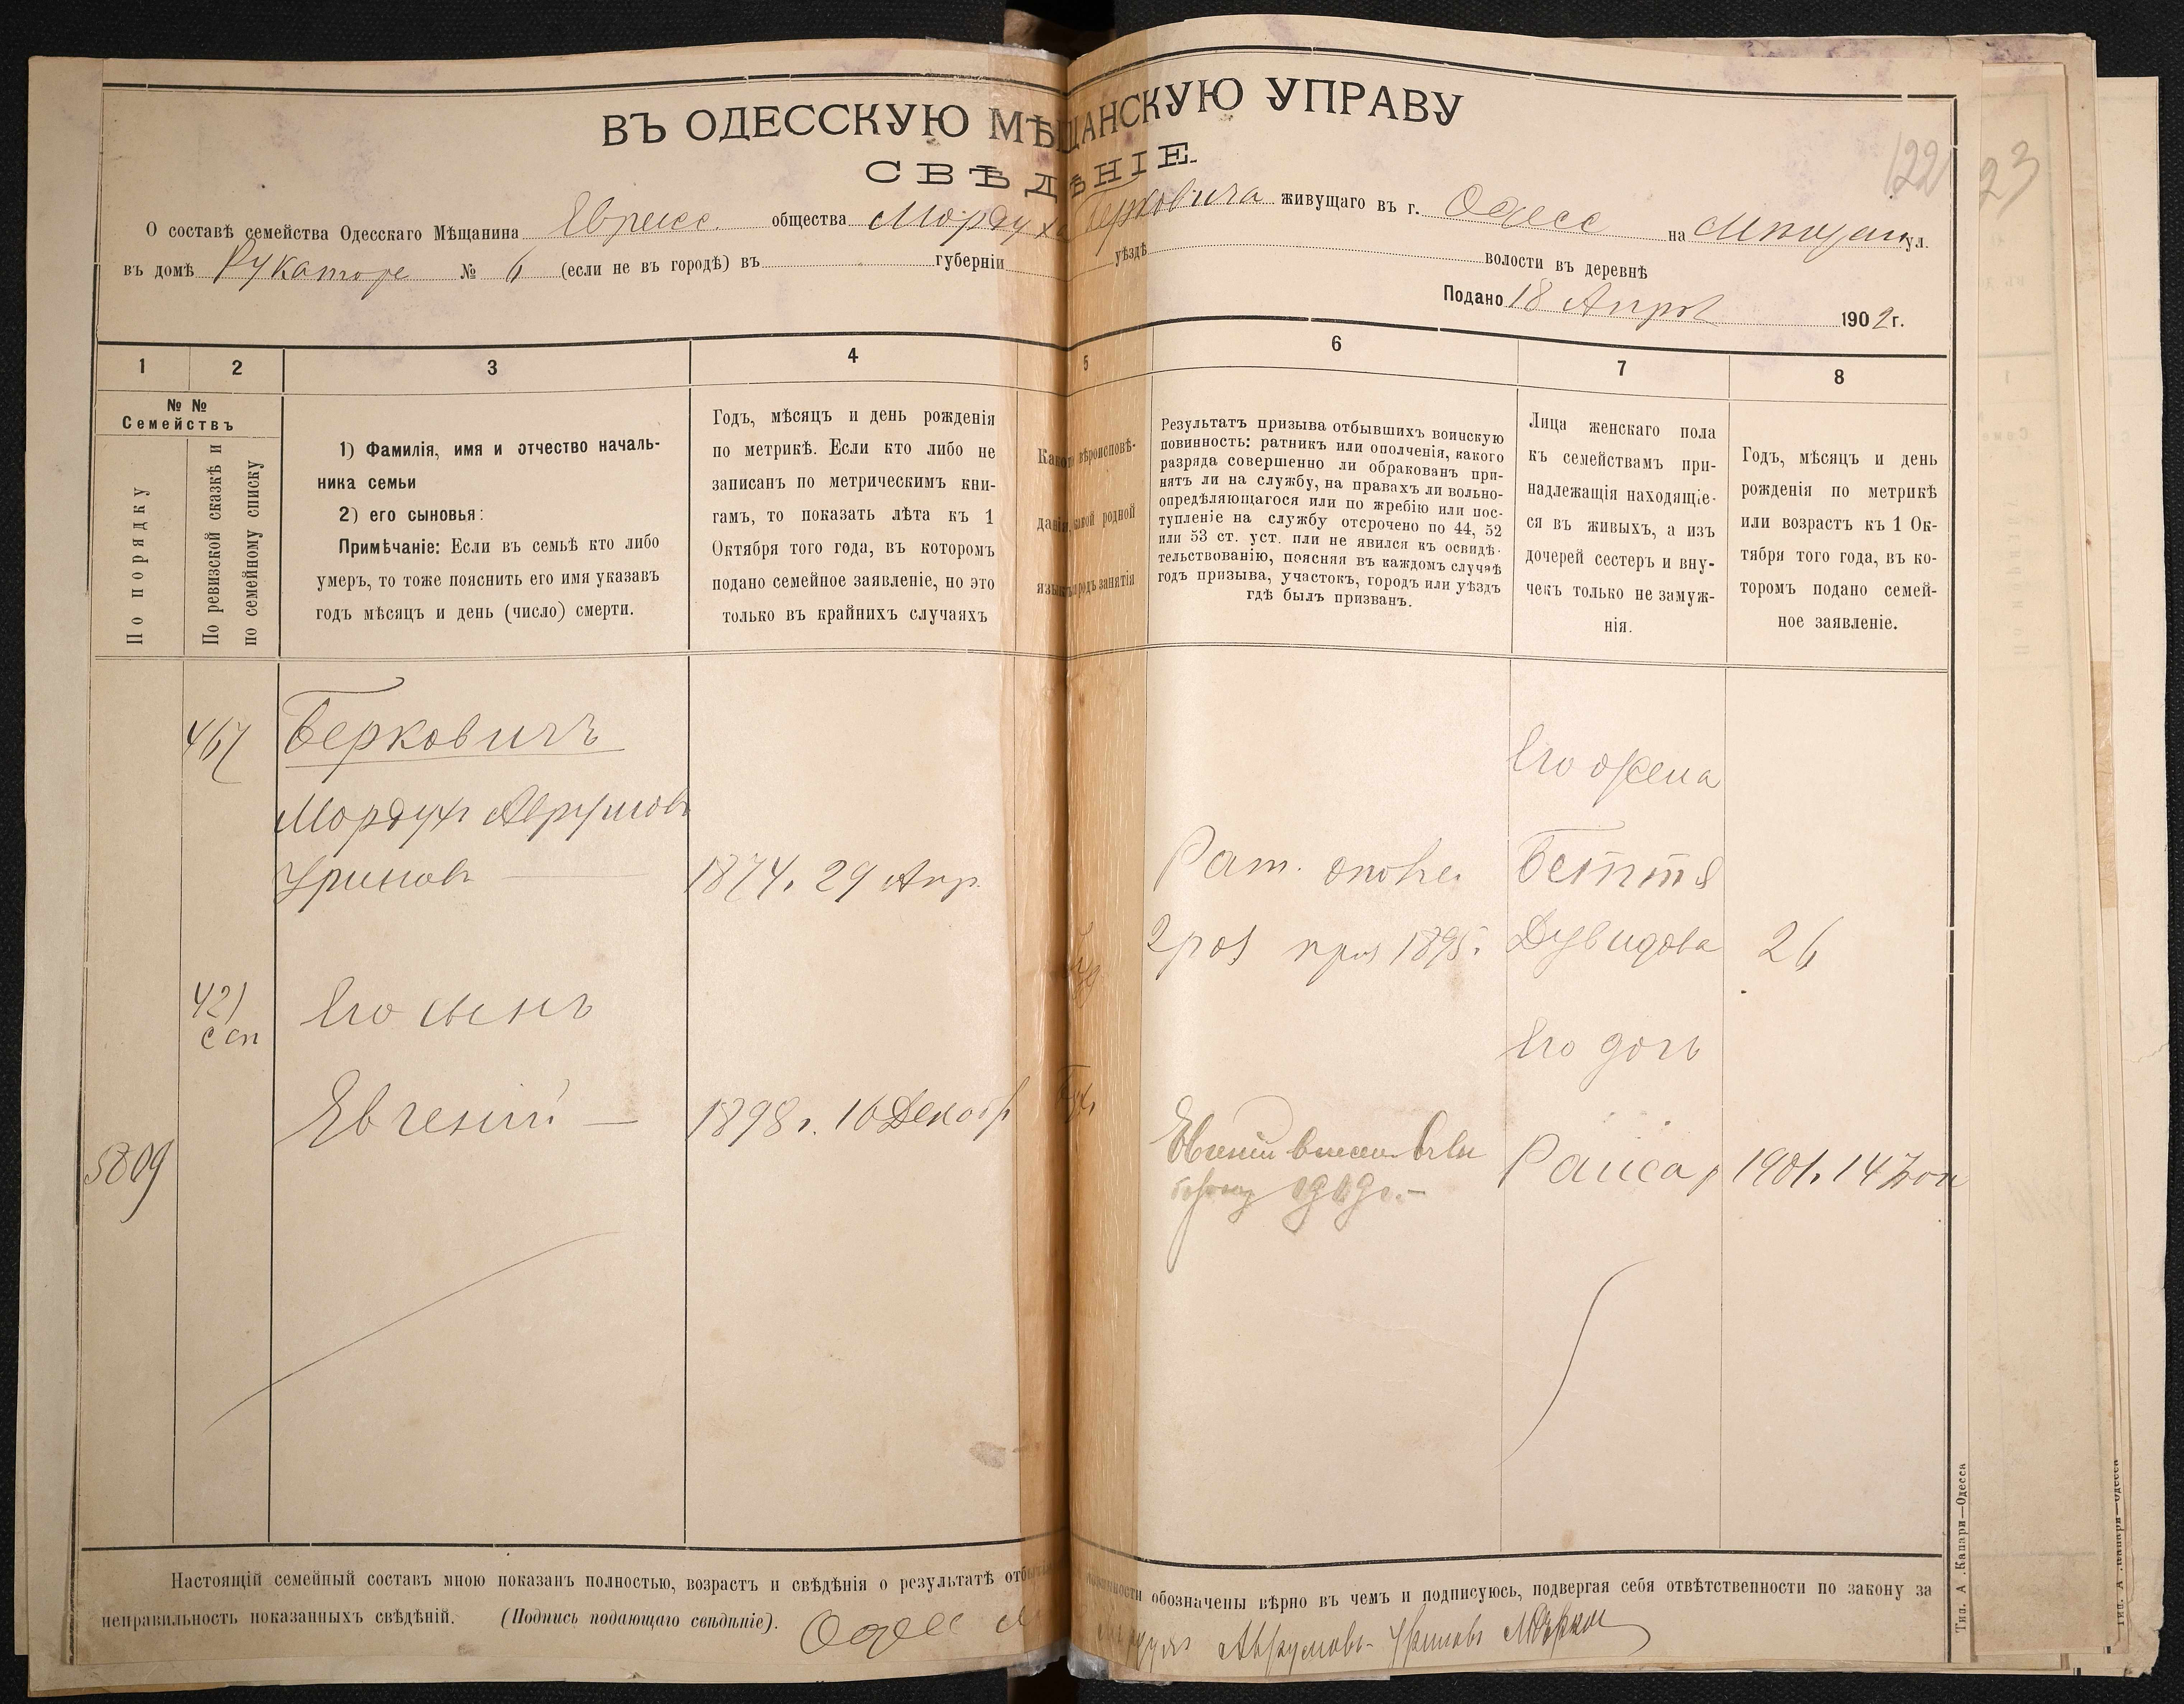 ВЪ ОДЕССКУЮ МѢЩАНСКУЮ УПРАВУ
СВѢДѢНІЕ.
122 23
О составѣ семейства Одесскаго Мѣщанина Евреис. общества Мордуха Берковича живущаго въ г. Одесс на ул.
въ домѣ № 6 (если не въ городѣ) въ губерніи уѣздѣ волости въ деревнѣ
Подано 18 Апрѣ 1902 г.
1 2 3 4 5 6 7 8
№ №
Семействъ
По порядку
По ревизской сказкѣ и
по семейному списку
1) Фамилія, имя и отчество началь-
ника семьи
2) его сыновья:
Примѣчаніе: Если въ семьѣ кто либо
умеръ, то тоже пояснить его имя указавъ
годъ мѣсяцъ и день (число) смерти.
Годъ, мѣсяцъ и день рожденія
по метрикѣ. Если кто либо не
записанъ по метрическимъ кни-
гамъ, то показать лѣта къ 1
Октября того года, въ которомъ
подано семейное заявленіе, но это
только въ крайнихъ случаяхъ
Какого вѣроисповѣ-
данія, какой родной
языкъ и родъ занятія
Результатъ призыва отбывшихъ воинскую
повинность: ратникъ или ополченія, какого
разряда совершенно ли обракованъ при-
нятъ ли на службу, на правахъ ли вольно-
опредѣляющагося или по жребію или пос-
тупленіе на службу отсрочено по 44, 52
или 53 ст. уст. или не явился къ освидѣ-
тельствованію, поясняя въ каждомъ случаѣ
годъ призыва, участокъ, городъ или уѣздъ
гдѣ былъ призванъ.
Лица женскаго пола
къ семействамъ при-
надлежащія находящіе-
ся въ живыхъ, а изъ
дочерей сестеръ и вну-
чекъ только не замуж-
нія.
Годъ, мѣсяцъ и день
рожденія по метрикѣ
или возрастъ къ 1 Ок-
тября того года, въ ко-
торомъ подано семей-
ное заявленіе.
467 Берковичъ
Его жена
Мордухъ Аврумовъ
Уриновъ 1874. 29 Апр. Рат. Бетття
1895. Дувидова 26
421 Его сынъ
с сп
Его дочь
Евгеній — 1898 г. 16 Декабр
Евгеній 1919 г. —
5809 Раиса 1901. 14
Настоящій семейный составъ мною показанъ полностью, возрастъ и свѣдѣнія о результатѣ повинности обозначены вѣрно въ чемъ и подписуюсь, подвергая себя отвѣтственности по закону за
неправильность показанныхъ свѣдѣній. (Подпись подающаго свѣдѣніе). Одесс Аврумовъ Уриновъ
Тип. А. Капари—Одесса